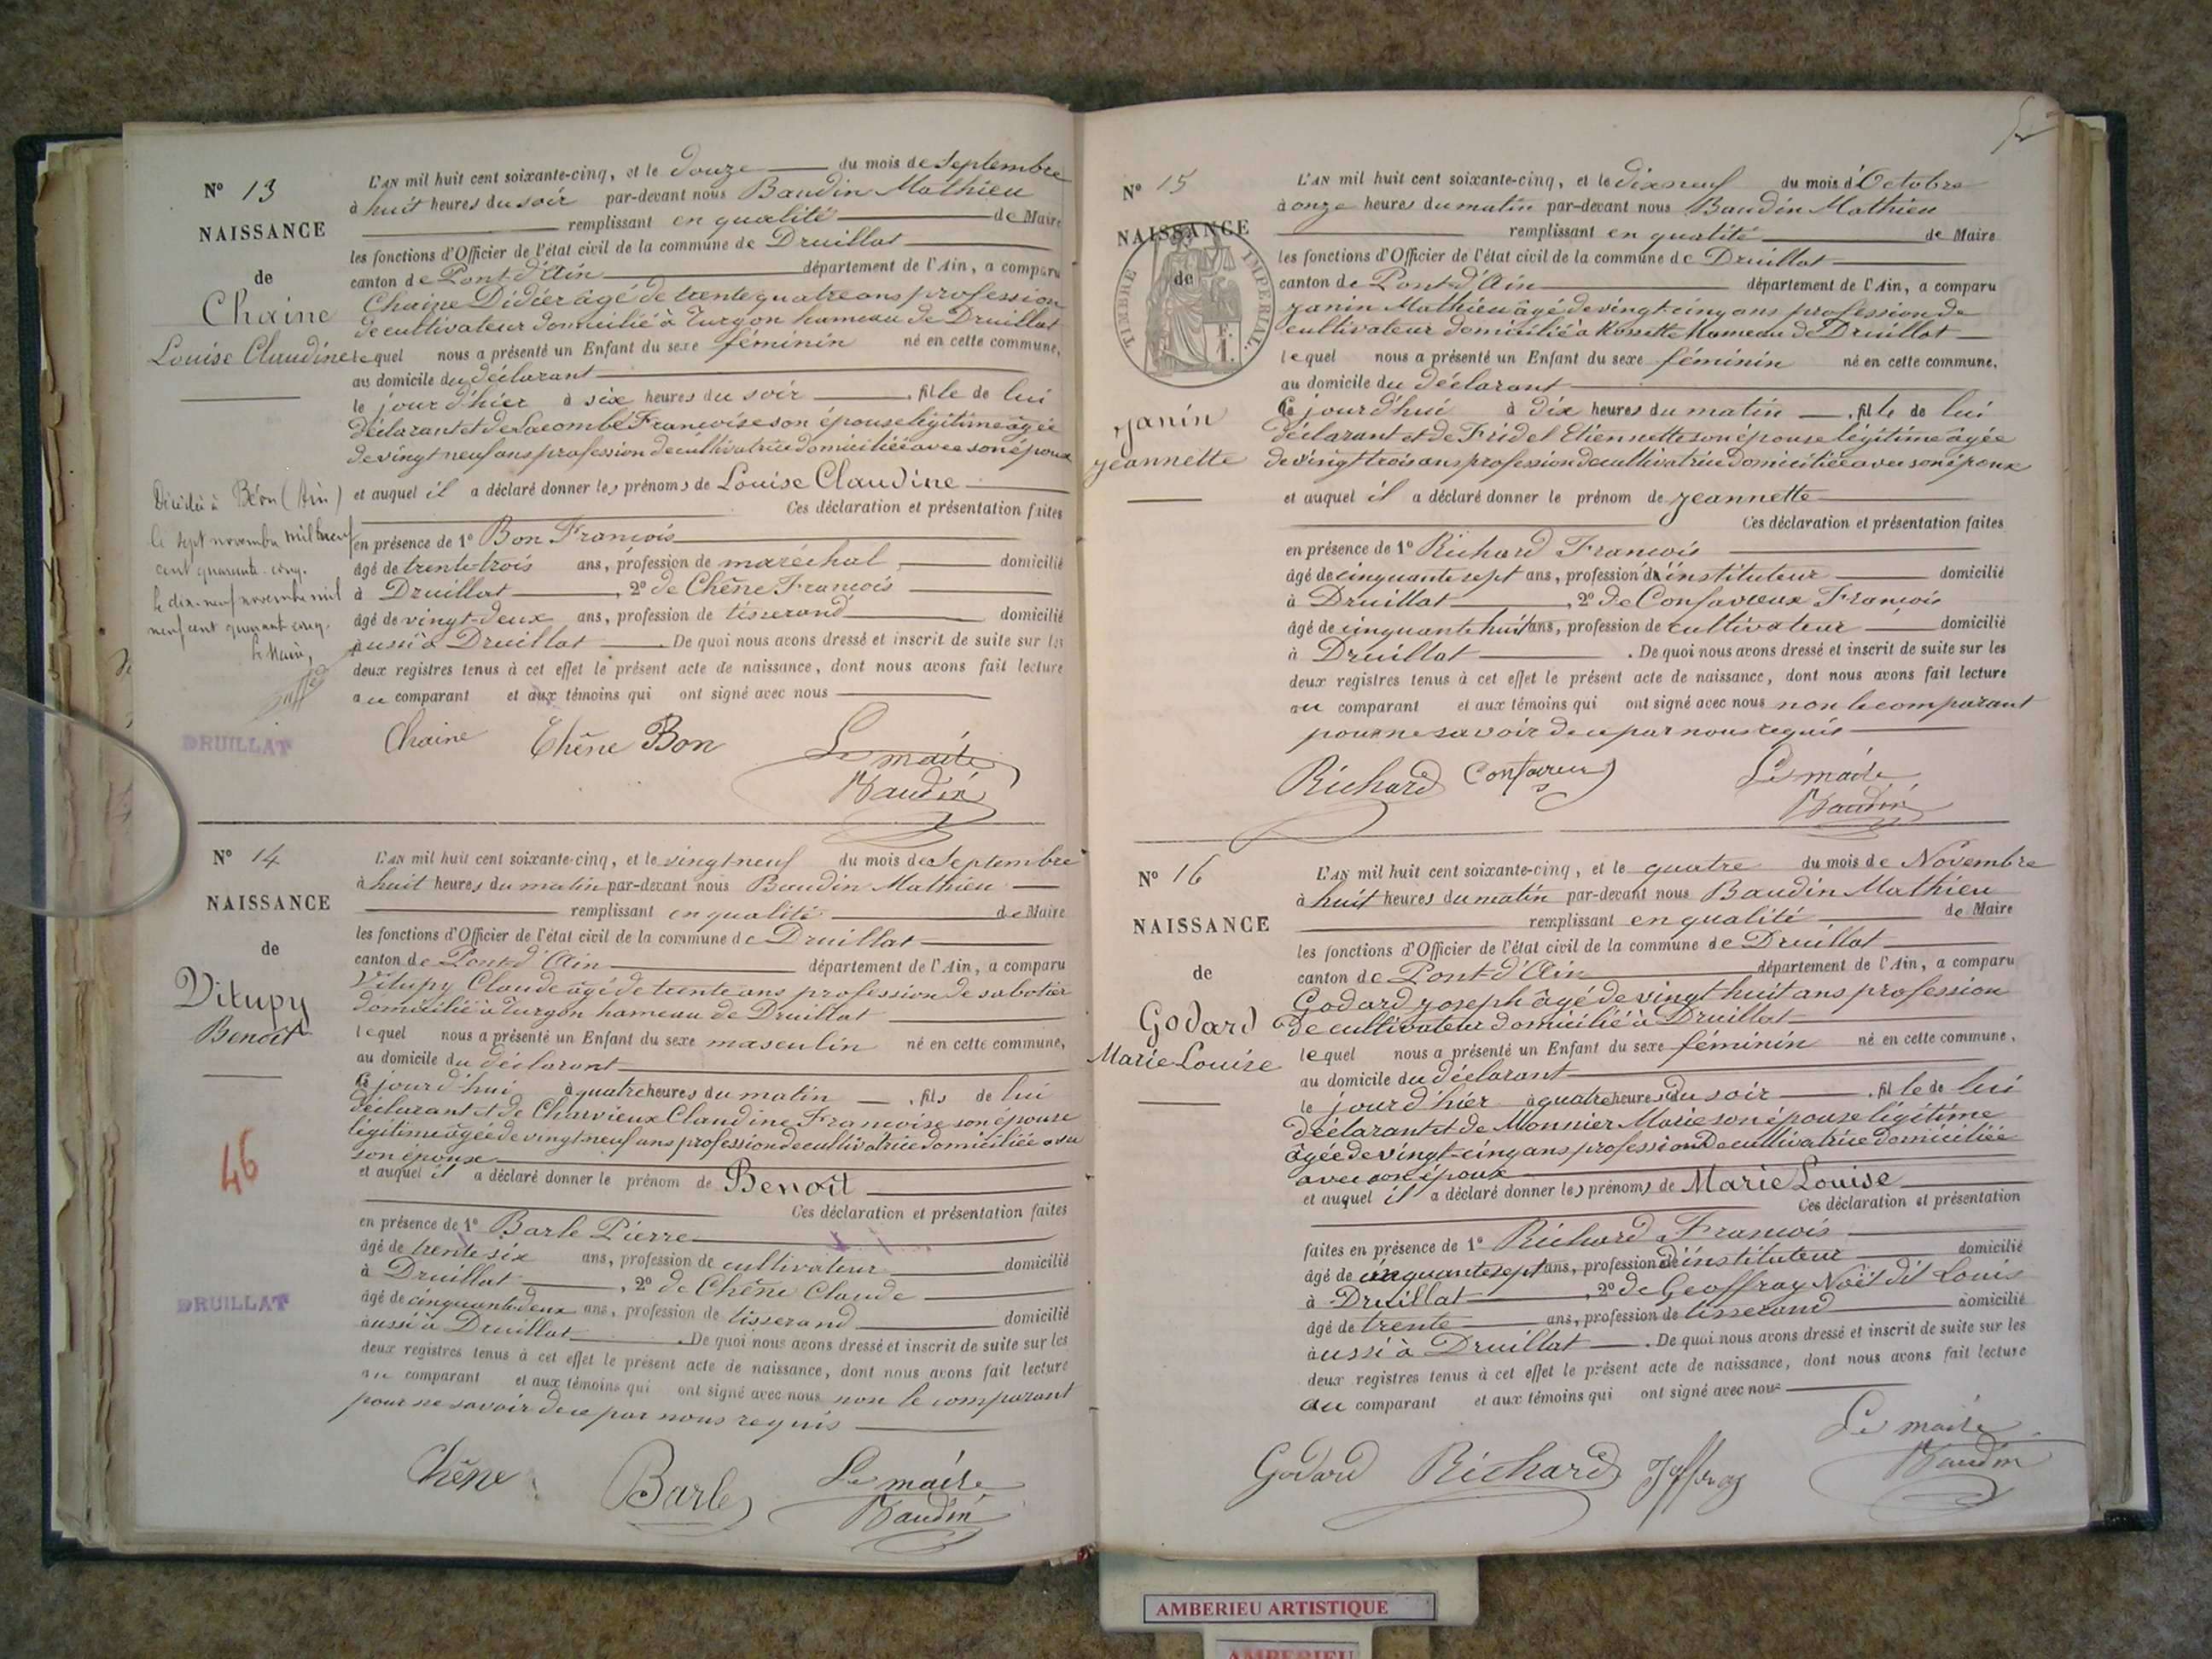 N° 13
NAISSANCE
de
Chaine
Louise Claudine
L'AN mil huit cent soixante-cinq, et le douze du mois de Septembre
à huit heures du soir par-devant nous Baudin Mathieu
remplissant en qualité de Maire
les fonctions d'Officier de l'état civil de la commune de Druillat
canton de Pont-d'Ain département de l'Ain, a comparu
Chaine Didier âgé de trente quatre ans profession
de cultivateur domicilié à Turgon hameau de Druillat
lequel nous a présenté un Enfant du sexe féminin né en cette commune,
au domicile du déclarant
le jour d'hier à six heures du soir , fille de lui
déclarant et de Lacombe Francoise son épouse légitime âgée
de vingt neuf ans profession de cultivatrice domiciliée avec son époux
et auquel il a déclaré donner les prénoms de Louise Claudine
Ces déclaration et présentation faites
en présence de 1° Bon Francois
âgé de trente-trois ans, profession de maréchal domicilié
à Druillat , 2° de Chêne Francois
âgé de vingt-deux ans, profession de tisserand domicilié
aussi à Druillat . De quoi nous avons dressé et inscrit de suite sur les
deux registres tenus à cet effet le présent acte de naissance, dont nous avons fait lecture
au comparant et aux témoins qui ont signé avec nous
Décédée à Béon (Ain)
le sept novembre mil neuf
cent quarante-cinq.
le dix-neuf novembre mil
neuf cent quarant cinq.
le Maire,
DRUILLAT
Chaine Chêne Bon Le maire
Baudin
N° 14
NAISSANCE
de
Vitupy
Benoit
46
DRUILLAT
L'AN mil huit cent soixante-cinq, et le vingt neuf du mois de Septembre
à huit heures du matin par-devant nous Baudin Mathieu
remplissant en qualité de Maire
les fonctions d'Officier de l'état civil de la commune de Druillat
canton de Pont-d'Ain département de l'Ain, a comparu
Vitupy Claude âgé de trente ans profession de sabotier
domicilié à Turgon hameau de Druillat
lequel nous a présenté un Enfant du sexe masculin né en cette commune,
au domicile du déclarant
Ce jour d'hui à quatre heures du matin , fils de lui
déclarant et de Charvieux Claudine Francoise son épouse
légitime âgée de vingt neuf ans profession de cultivatrice domiciliée avec
son époux
et auquel il a déclaré donner le prénom de Benoit
Ces déclaration et présentation faites
en présence de 1° Barle Pierre
âgé de trente six ans, profession de cultivateur domicilié
à Druillat , 2° de Chêne Claude
âgé de cinquante deux ans, profession de tisserand domicilié
aussi à Druillat . De quoi nous avons dressé et inscrit de suite sur les
deux registres tenus à cet effet le présent acte de naissance, dont nous avons fait lecture
au comparant et aux témoins qui ont signé avec nous non le comparant
pour ne savoir de ce par nous requis
Chêne Barle Le maire
Baudin
N° 15
NAISSANCE
de
TIMBRE IMPERIAL
F.
1.
Janin
Jeannette
L'AN mil huit cent soixante-cinq, et le dix neuf du mois d'Octobre
à onze heures du matin par-devant nous Baudin Mathieu
remplissant en qualité de Maire
les fonctions d'Officier de l'état civil de la commune de Druillat
canton de Pont-d'Ain département de l'Ain, a comparu
Janin Mathieu âgé de vingt-cinq ans profession de
cultivateur domicilié à Rossette hameau de Druillat
lequel nous a présenté un Enfant du sexe féminin né en cette commune,
au domicile du déclarant
Ce jour d'hui à dix heures du matin , fille de lui
déclarant et de Fridel Etiennette son épouse légitime âgée
de vingt trois ans profession de cultivatrice domiciliée avec son époux
et auquel il a déclaré donner le prénom de Jeannette
Ces déclaration et présentation faites
en présence de 1° Richard Francois
âgé de cinquante sept ans, profession d'instituteur domicilié
à Druillat , 2° de Confavreux Francois
âgé de cinquante huit ans, profession de cultivateur domicilié
à Druillat . De quoi nous avons dressé et inscrit de suite sur les
deux registres tenus à cet effet le présent acte de naissance, dont nous avons fait lecture
au comparant et aux témoins qui ont signé avec nous non le comparant
pour ne savoir de ce par nous requis
Richard Confavreux Le maire
Baudin
N° 16
NAISSANCE
de
Godard
Marie Louise
L'AN mil huit cent soixante-cinq, et le quatre du mois de Novembre
à huit heures du matin par-devant nous Baudin Mathieu
remplissant en qualité de Maire
les fonctions d'Officier de l'état civil de la commune de Druillat
canton de Pont-d'Ain département de l'Ain, a comparu
Godard Joseph âgé de vingt huit ans profession
de cultivateur domicilié à Druillat
lequel nous a présenté un Enfant du sexe féminin né en cette commune,
au domicile du déclarant
le jour d'hier à quatre heures du soir , fille de lui
déclarant et de Monnier Marie son épouse légitime
âgée de vingt-cinq ans profession de cultivatrice domiciliée
avec son époux
et auquel il a déclaré donner les prénoms de Marie Louise
Ces déclaration et présentation
faites en présence de 1° Richard Francois
âgé de cinquante sept ans, profession d'instituteur domicilié
à Druillat , 2° de Geoffray Noël dit Louis
âgé de trente ans, profession de tisserand domicilié
aussi à Druillat . De quoi nous avons dressé et inscrit de suite sur les
deux registres tenus à cet effet le présent acte de naissance, dont nous avons fait lecture
au comparant et aux témoins qui ont signé avec nous
Godard Richard Le maire
Baudin
AMBERIEU ARTISTIQUE
AMBERIEU